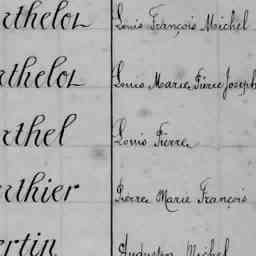 rthelot Louis François Michel
rthelot Louis Marie Pierre Joseph
rthel Louis Pierre
rthier Pierre Marie François
ertin Augustin Michel